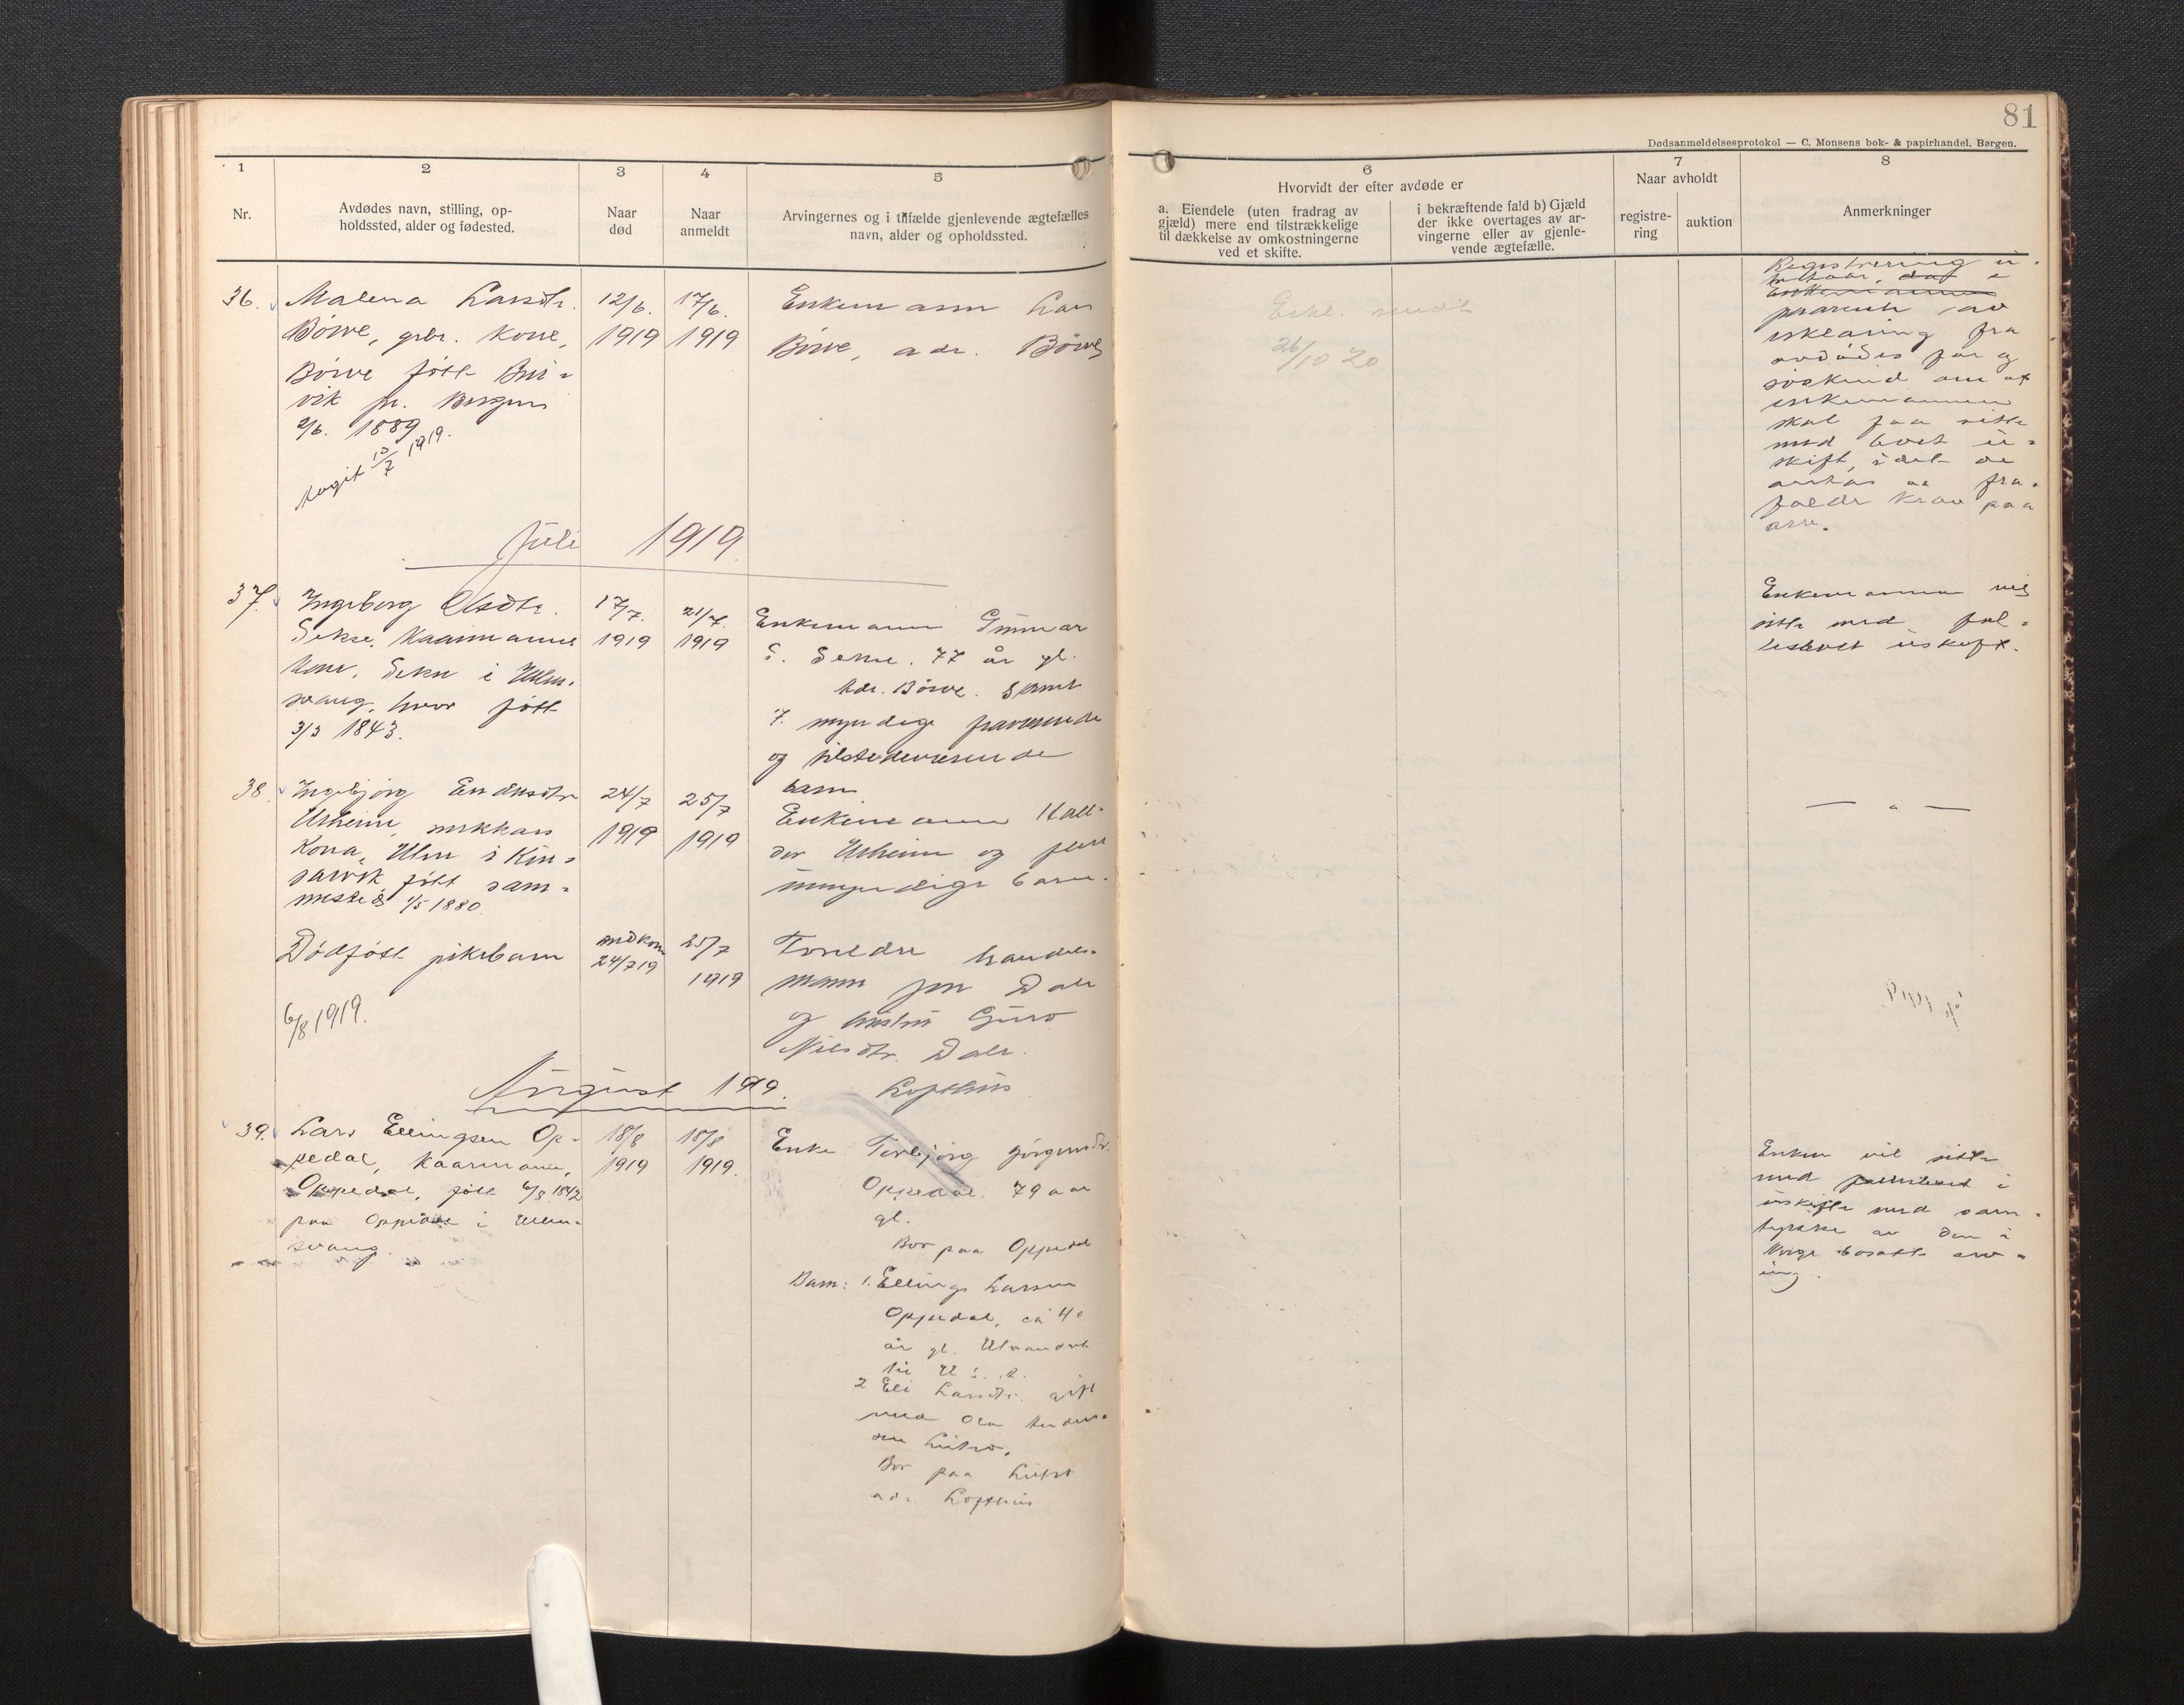 81
Dødsanmeldelsesprotokol — C. Monsens bok- & papirhandel, Bergen.
1
Nr.
2
Avdødes navn, stilling, op-
holdssted, alder og fødested.
3
Naar
død
4
Naar
anmeldt
5
Arvingernes og i tilfælde gjenlevende ægtefælles
navn, alder og opholdssted.
6
Hvorvidt der efter avdøde er
a. Eiendele (uten fradrag av
gjæld) mere end tilstrækkelige
til dækkelse av omkostningerne
ved et skifte.
i bekræftende fald b) Gjæld
der ikke overtages av ar-
vingerne eller av gjenle-
vende ægtefælle.
7
Naar avholdt
registre-
ring
auktion
8
Anmerkninger
36.
Malena Larsdtr.
Börve, gbr. kone,
Börve født
vik pr. Bergen
2/6. 1889
Avgit 15/7 1919.
12/6.
1919
17/6.
1919
Enkemann Lars
Börve, adr. Börve
Erkl. sendt
26/10 20
Registrering u-
paavente av
erklæring fra
avdödes far og
søskend om at
enkemannen
skal faa sitte
med boet u-
skift, idet de
antas aa fra-
falde krav paa
arv.
Juli 1919.
37.
Ingeborg Olsdtr.
Sekse, Kaarmanns
kone, Sekse i Ullens-
vang, hvor født
3/3 1843.
17/7.
1919
21/7.
1919
Enkemann Gunnar
S. Sekse. 77 år gl.
Adr. Börve. Samt
7 myndige fraværende
og tilstedeværende
barn
Enkemannen vil
sitte med fæl-
lesboet uskift.
38
Ingebjörg Endresdtr
Utheim, snekkers
kona, Ulen i Kin-
sarvik født sam-
mesteds 1/5 1880
24/7
1919
25/7
1919
Enkemann Hall-
dor Utheim og flere
umyndige barn.
— " —
Dödfött pikebarn
6/8 1919.
nedkom
24/7 19
25/7
1919
Foreldre handels-
mann Jon Dale
og hustru Guro
Nilsdtr. Dale.
Lofthus
August 1919.
39.
Lars Ellingsen Op-
pedal, Kaarmann,
Oppedal, født 6/8 1842
paa Oppedal i Ullens-
vang.
18/8
1919
18/8
1919.
Enke Torbjörg Jörgensdtr.
Oppedal 79 aar
gl.
Bor paa Oppedal
Barn: 1. Elling Larsen
Oppedal, ca 40
år gl. Utvandret
til U.S.A.
2 Eli Larsdtr. gift
med Ola Anders-
sen Lutro.
Bor paa Lutro
adr. Lofthus
Enken vil sitte
med fællesboet i
uskifte med sam-
tykke av den i
Norge bosatte arv-
ing.